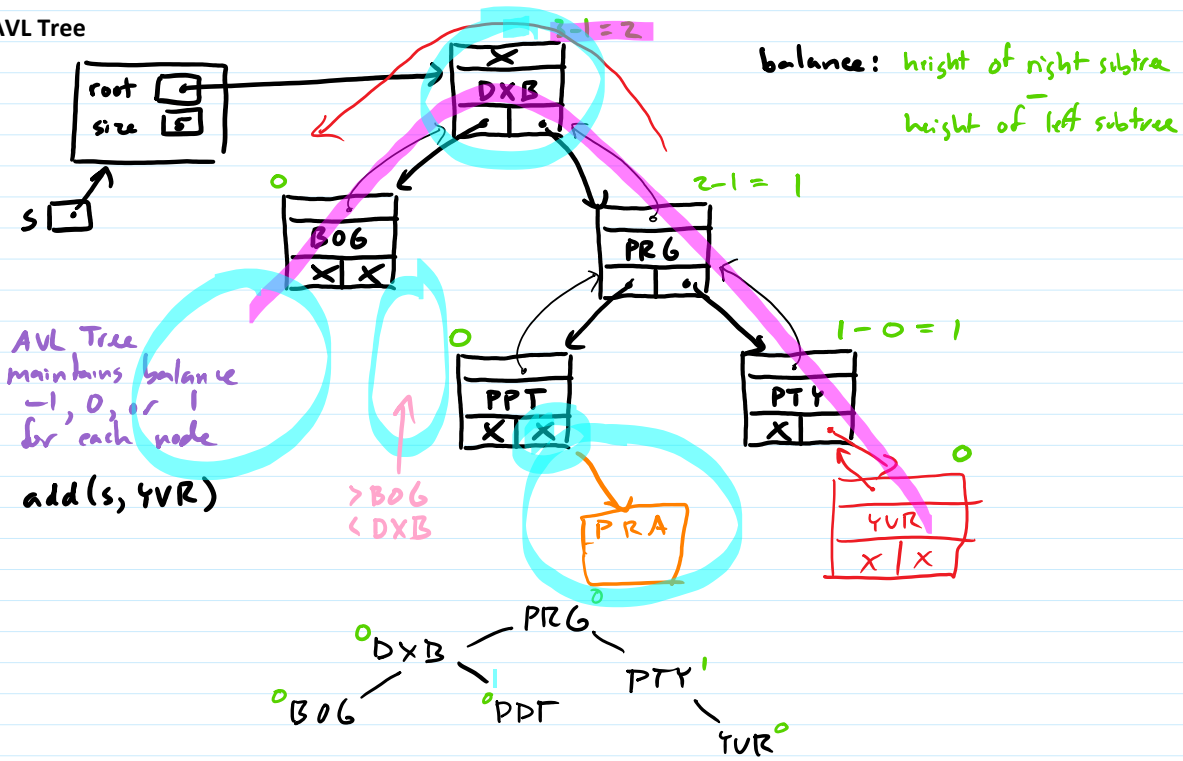 AVL Tree
3-1=2
balance: height of right subtree
-
height of left subtree
root
size 5
S
X
DXB
0
BOG
X X
2-1 = 1
PRG
0
PPT
X X
1-0=1
PTY
X
0
YUR
X X
AVL Tree
maintains balance
-1, 0, or 1
for each node
add(s, YVR)
>BOG
<DXB
PRA
PRG 0
0 DXB
PTY 1
1
0 BOG
0 PPT
YUR 0